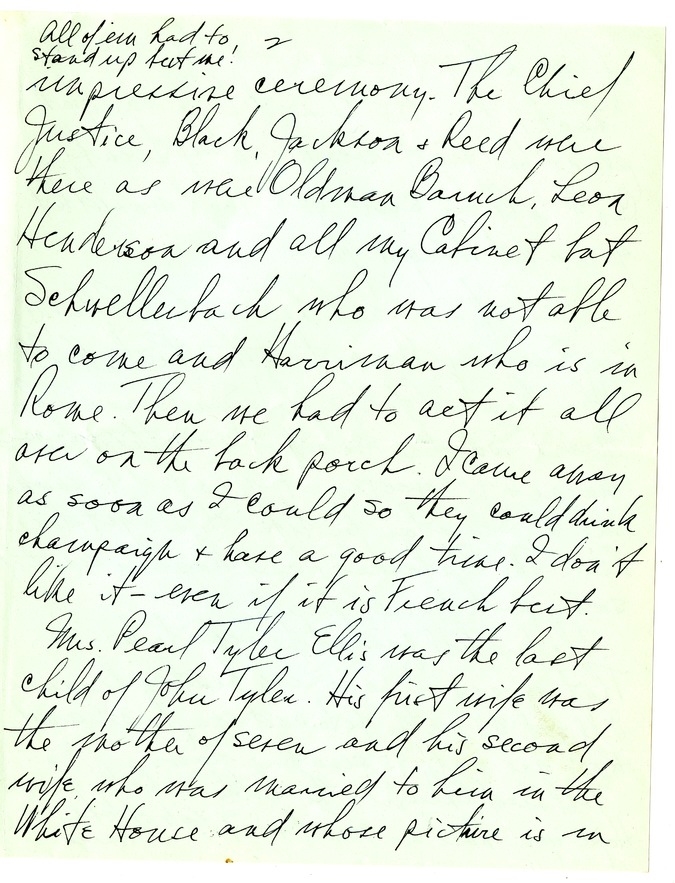 All of em had to 2
stand up but me!
impressive ceremony. The Chief
Justice, Black, Jackson & Reed were
there as were Oldman Baruch, Leon
Henderson and all my Cabinet but
Schwellenbach who was not able
to come and Harriman who is in
Rome. Then we had to act it all
over on the back porch. I came away
as soon as I could so they could drink
champaign & have a good time. I don't
like it - even if it is French best.
Mrs. Pearl Tyler Ellis was the last
child of John Tyler. His first wife was
the mother of seven and his second
wife, who was married to him in the
White House and whose picture is in